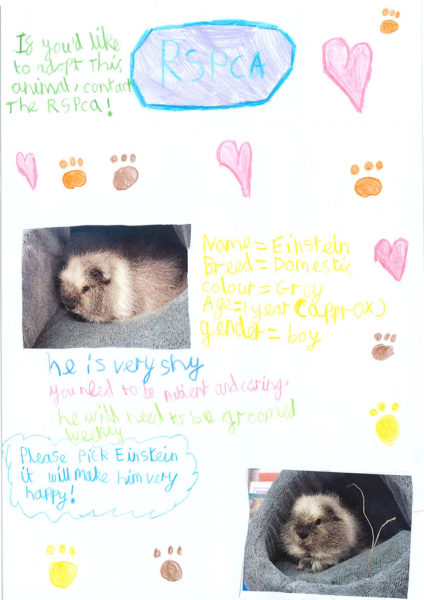 If you'd like
to adopt this
animal, contact
The RSPca!
RSPCA
Name = Einstein
Breed = Domestic
colour = Grey
Age = 1 year (approx)
gender = boy
he is very shy
you need to be patient and caring.
he will need to be groomed
weekly
Please pick Einstein
it will make him very
happy!